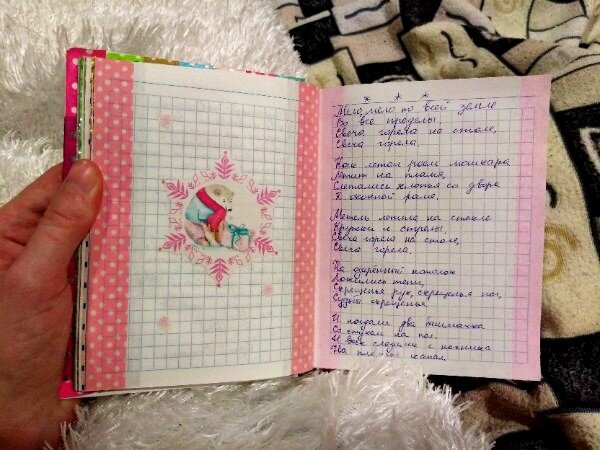 * * *
Мело, мело по всей земле
Во все пределы.
Свеча горела на столе,
Свеча горела.
Как летом роем мошкара
Летит на пламя,
Слетались хлопья со двора
К оконной раме.
Метель лепила на стекле
Кружки и стрелы.
Свеча горела на столе,
Свеча горела.
На озаренный потолок
Ложились тени,
Скрещенья рук, скрещенья ног,
Судьбы скрещенья.
И падали два башмачка
Со стуком на пол.
И воск слезами с ночника
На платье капал.